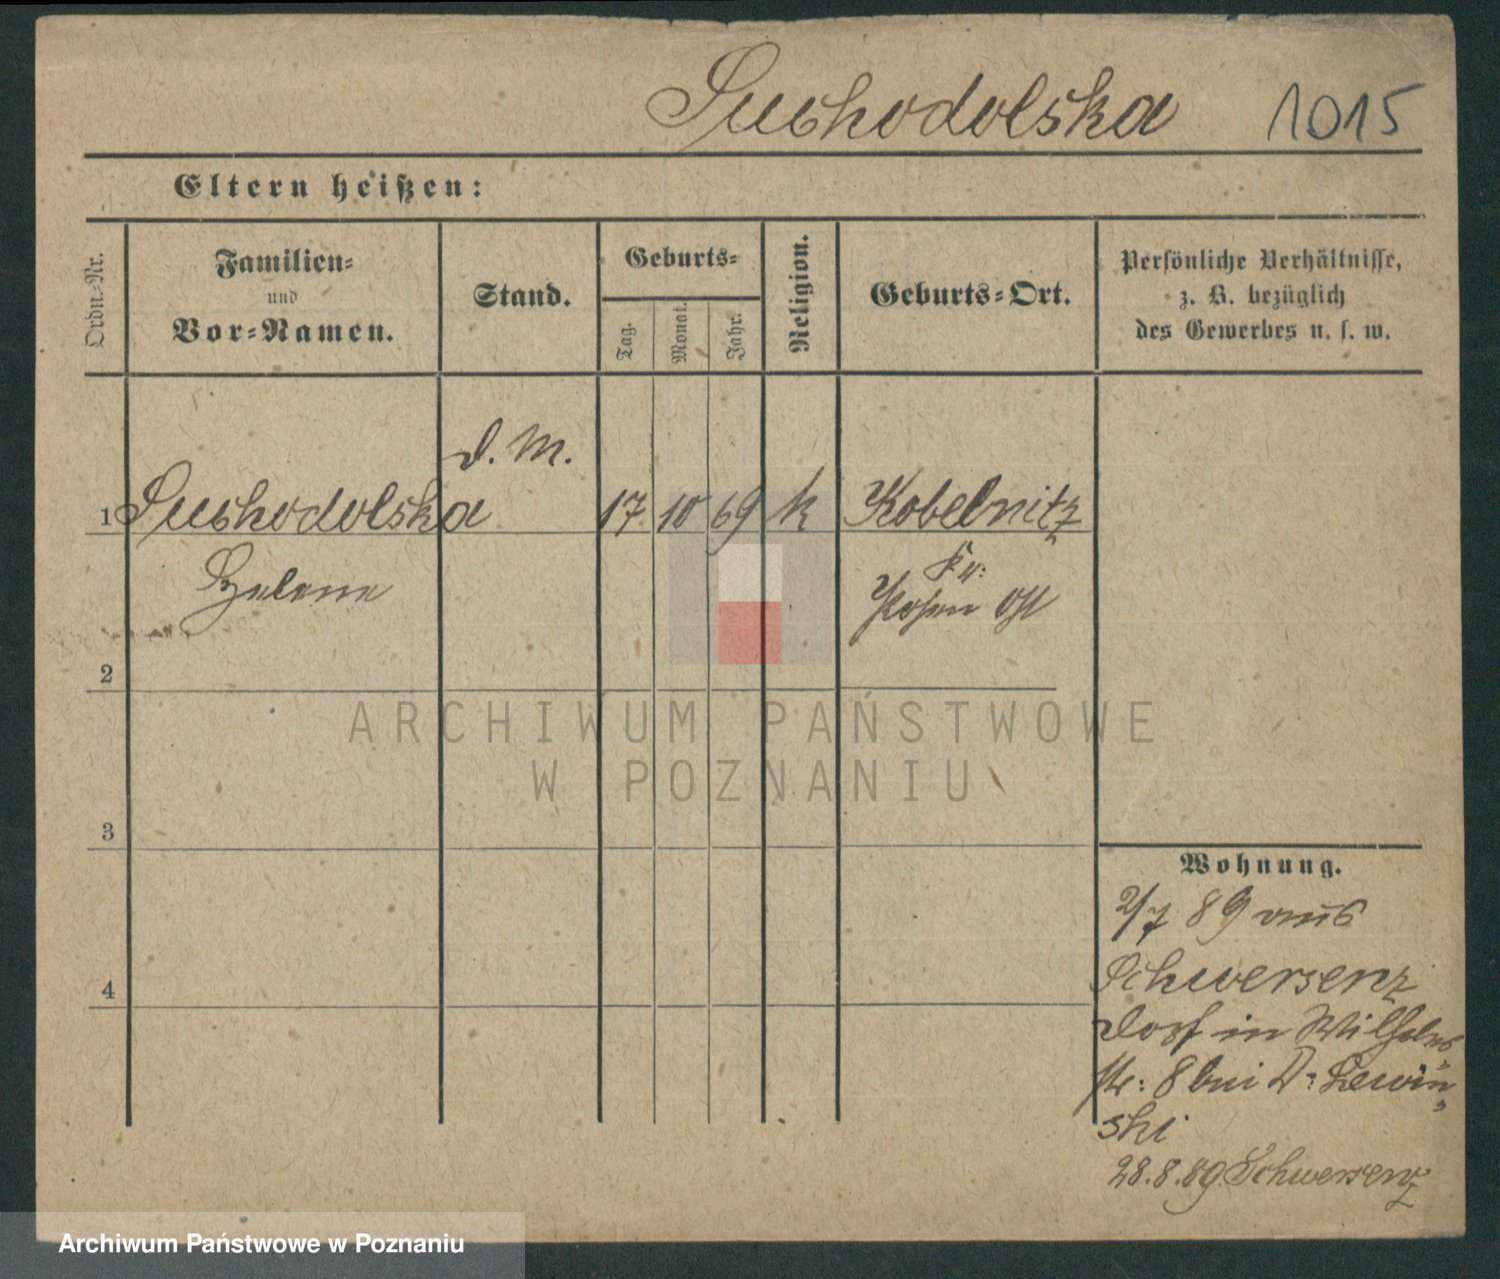 Suchodolska 1015
Eltern heißen:
Ordn.-Nr.
Familien-
und
Vor-Namen.
Stand.
Geburts-
Tag.
Monat.
Jahr.
Religion.
Geburts-Ort.
Persönliche Verhältnisse,
z. B. bezüglich
des Gewerbes u. s. w.
d. M.
1 Suchodolska 17 10 69 k Kobelnitz
Helene
Kr:
Posen Ost
2
3
4
Wohnung.
2/7 89 aus
Schwersenz
Dorf in Wilhelms
str: 8 bei D: Lewin-
ski
28.8.89 Schwersenz
ARCHIWUM PAŃSTWOWE
W POZNANIU
Archiwum Państwowe w Poznaniu